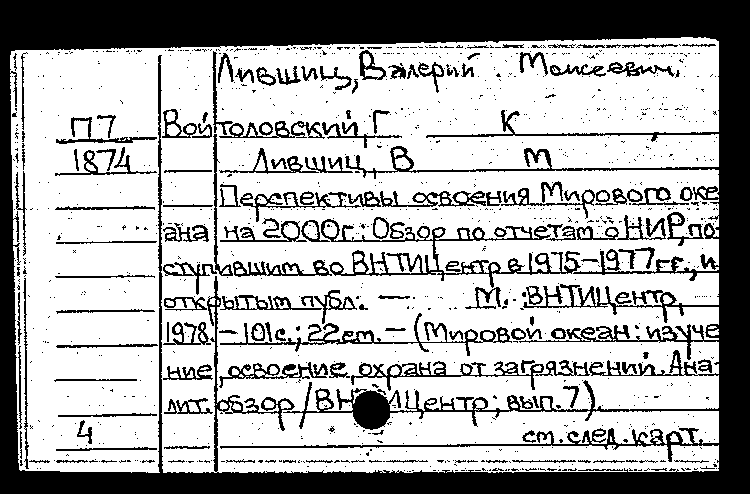 Лившиц, Валерий Моисеевич.
П7 Войтоловский, Г К
1874 Лившиц, В М
Перспективы освоения Мирового оке
ана на 2000г.: Обзор по отчетам о НИР, по-
ступившим во ВНТИЦентр в 1975-1977гг., и
открытым публ. — М. : ВНТИЦентр,
1978. - 101с.; 22см. - (Мировой океан: изуче
ние, освоение, охрана от загрязнений. Ана-
лит. обзор / ВНТИЦентр; вып.7).
4 см. след. карт.